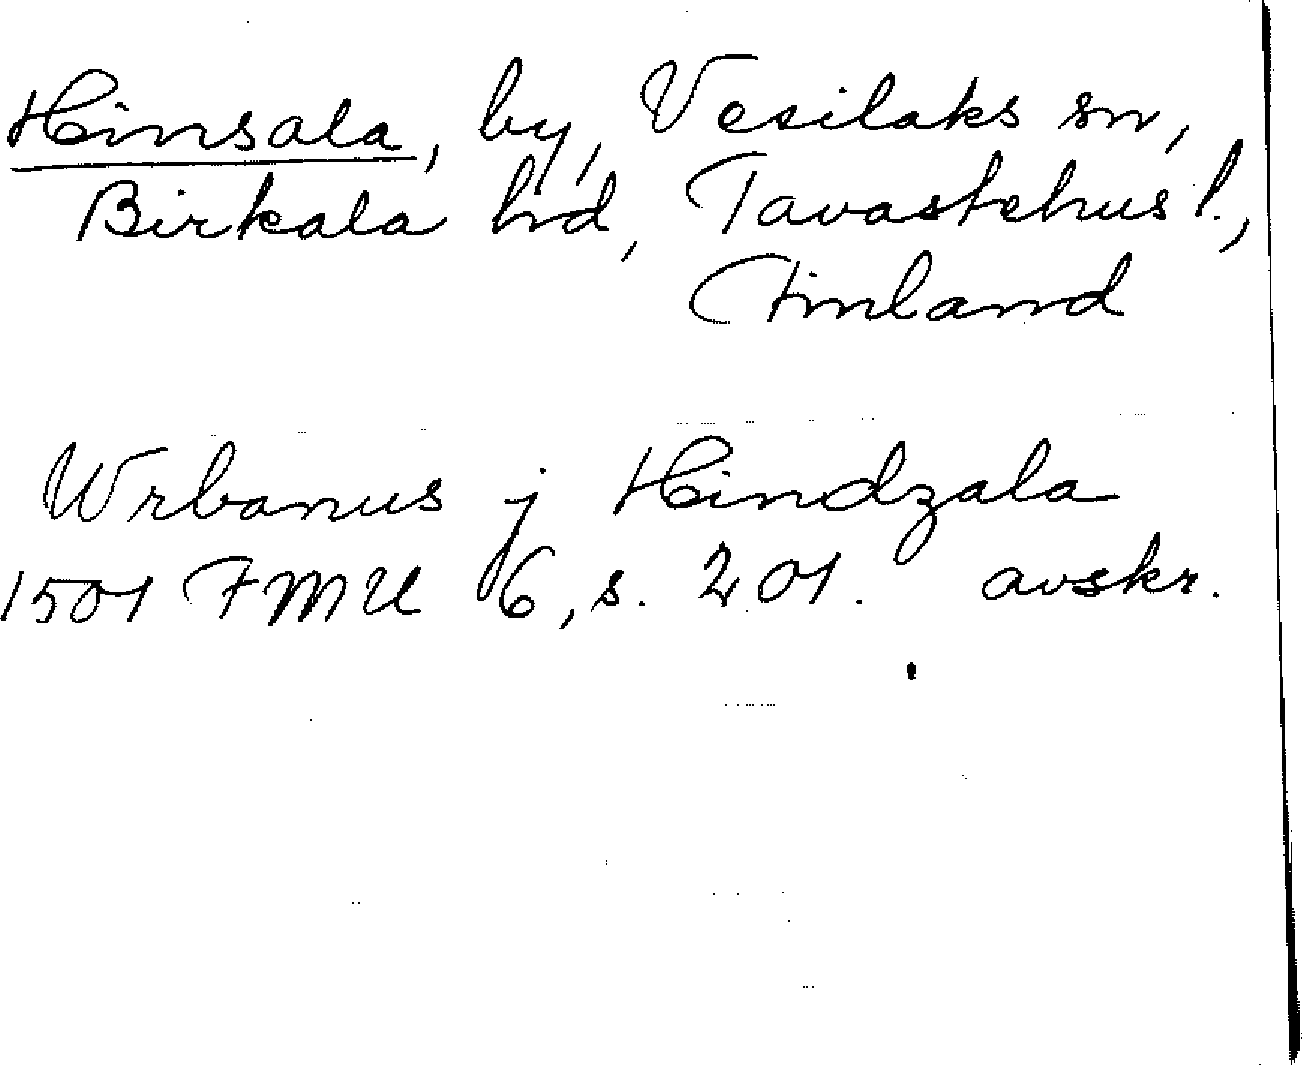 Hinsala, by, Vesilaks sn,
Birkala hd, Tavastehus l.,
Finland
Wrbanus j Hindzala
1501 FMU 6, s. 201. avskr.